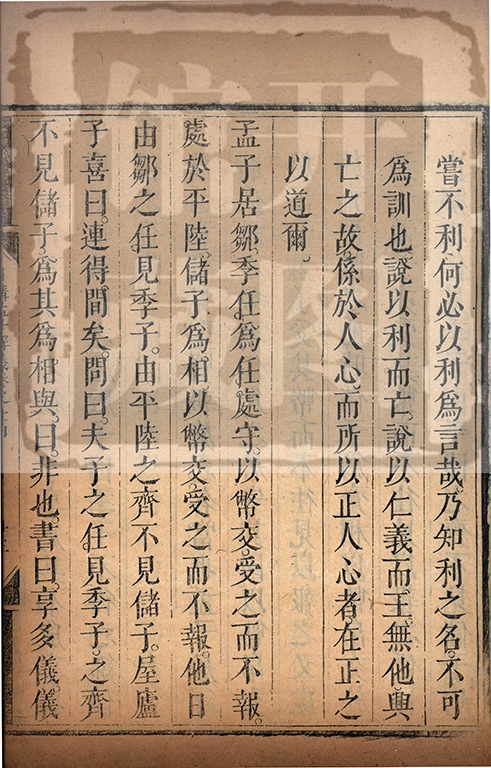 嘗不利。何必以利爲言哉。乃知利之名。不可
爲訓也。說以利而亡。說以仁義而王。無他。興
亡之故。係於人心。而所以正人心者。在正之
以道爾。
孟子居鄒。季任爲任處守。以幣交。受之而不報。
處於平陸。儲子爲相。以幣交。受之而不報。他日
由鄒之任。見季子。由平陸之齊。不見儲子。屋廬
子喜曰。連得閒矣。問曰。夫子之任。見季子。之齊
不見儲子。爲其爲相與。曰。非也。書曰。享多儀。儀